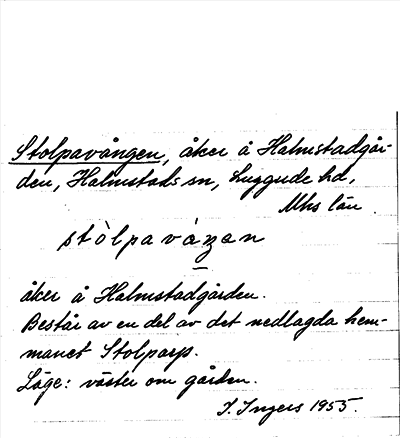 Stolpavången, åker å Halmstadgår-
den, Halmstads sn, Luggude hd,
Mhs län
stòlpaváŋan
åker å Halmstadgården.
Består av en del av det nedlagda hem-
manet Stolparp.
Läge: väster om gården.
I. Ingers 1955.